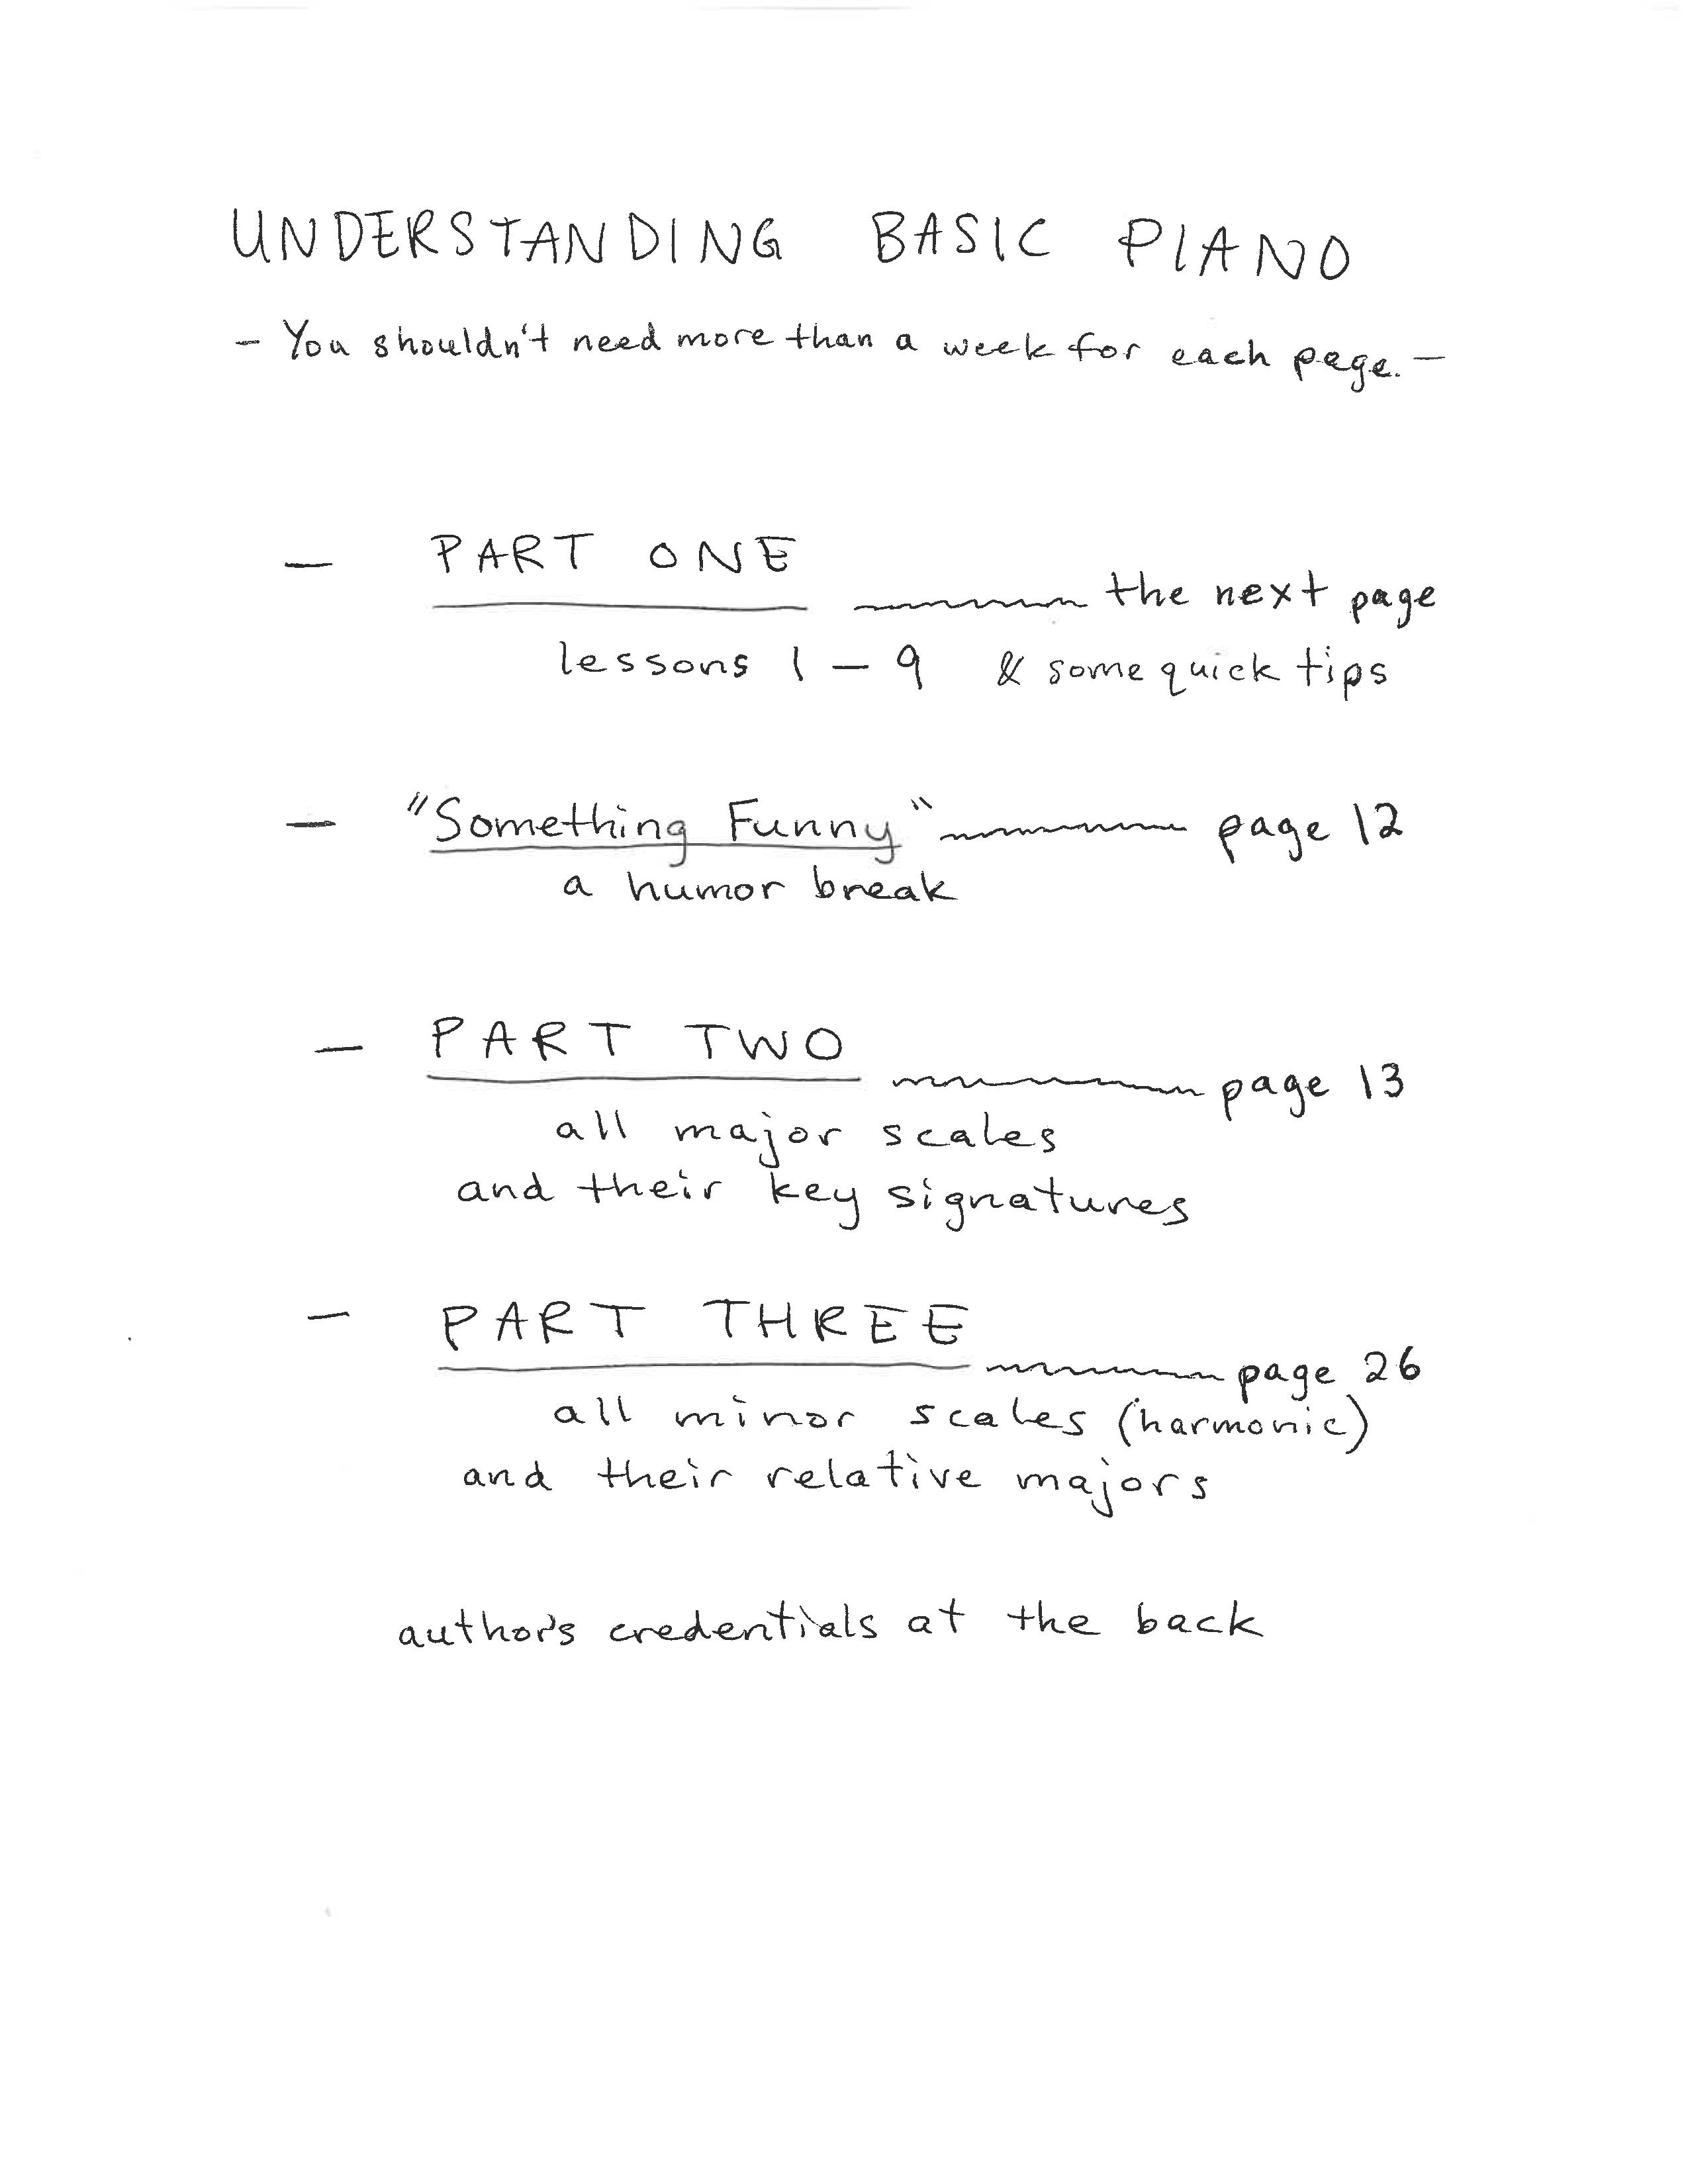 UNDERSTANDING BASIC PIANO
- You shouldn't need more than a week for each page. -
- PART ONE
the next page
lessons 1 - 9 & some quick tips
- "Something Funny" page 12
a humor break
- PART TWO
page 13
all major scales
and their key signatures
- PART THREE
page 26
all minor scales (harmonic)
and their relative majors
author's credentials at the back